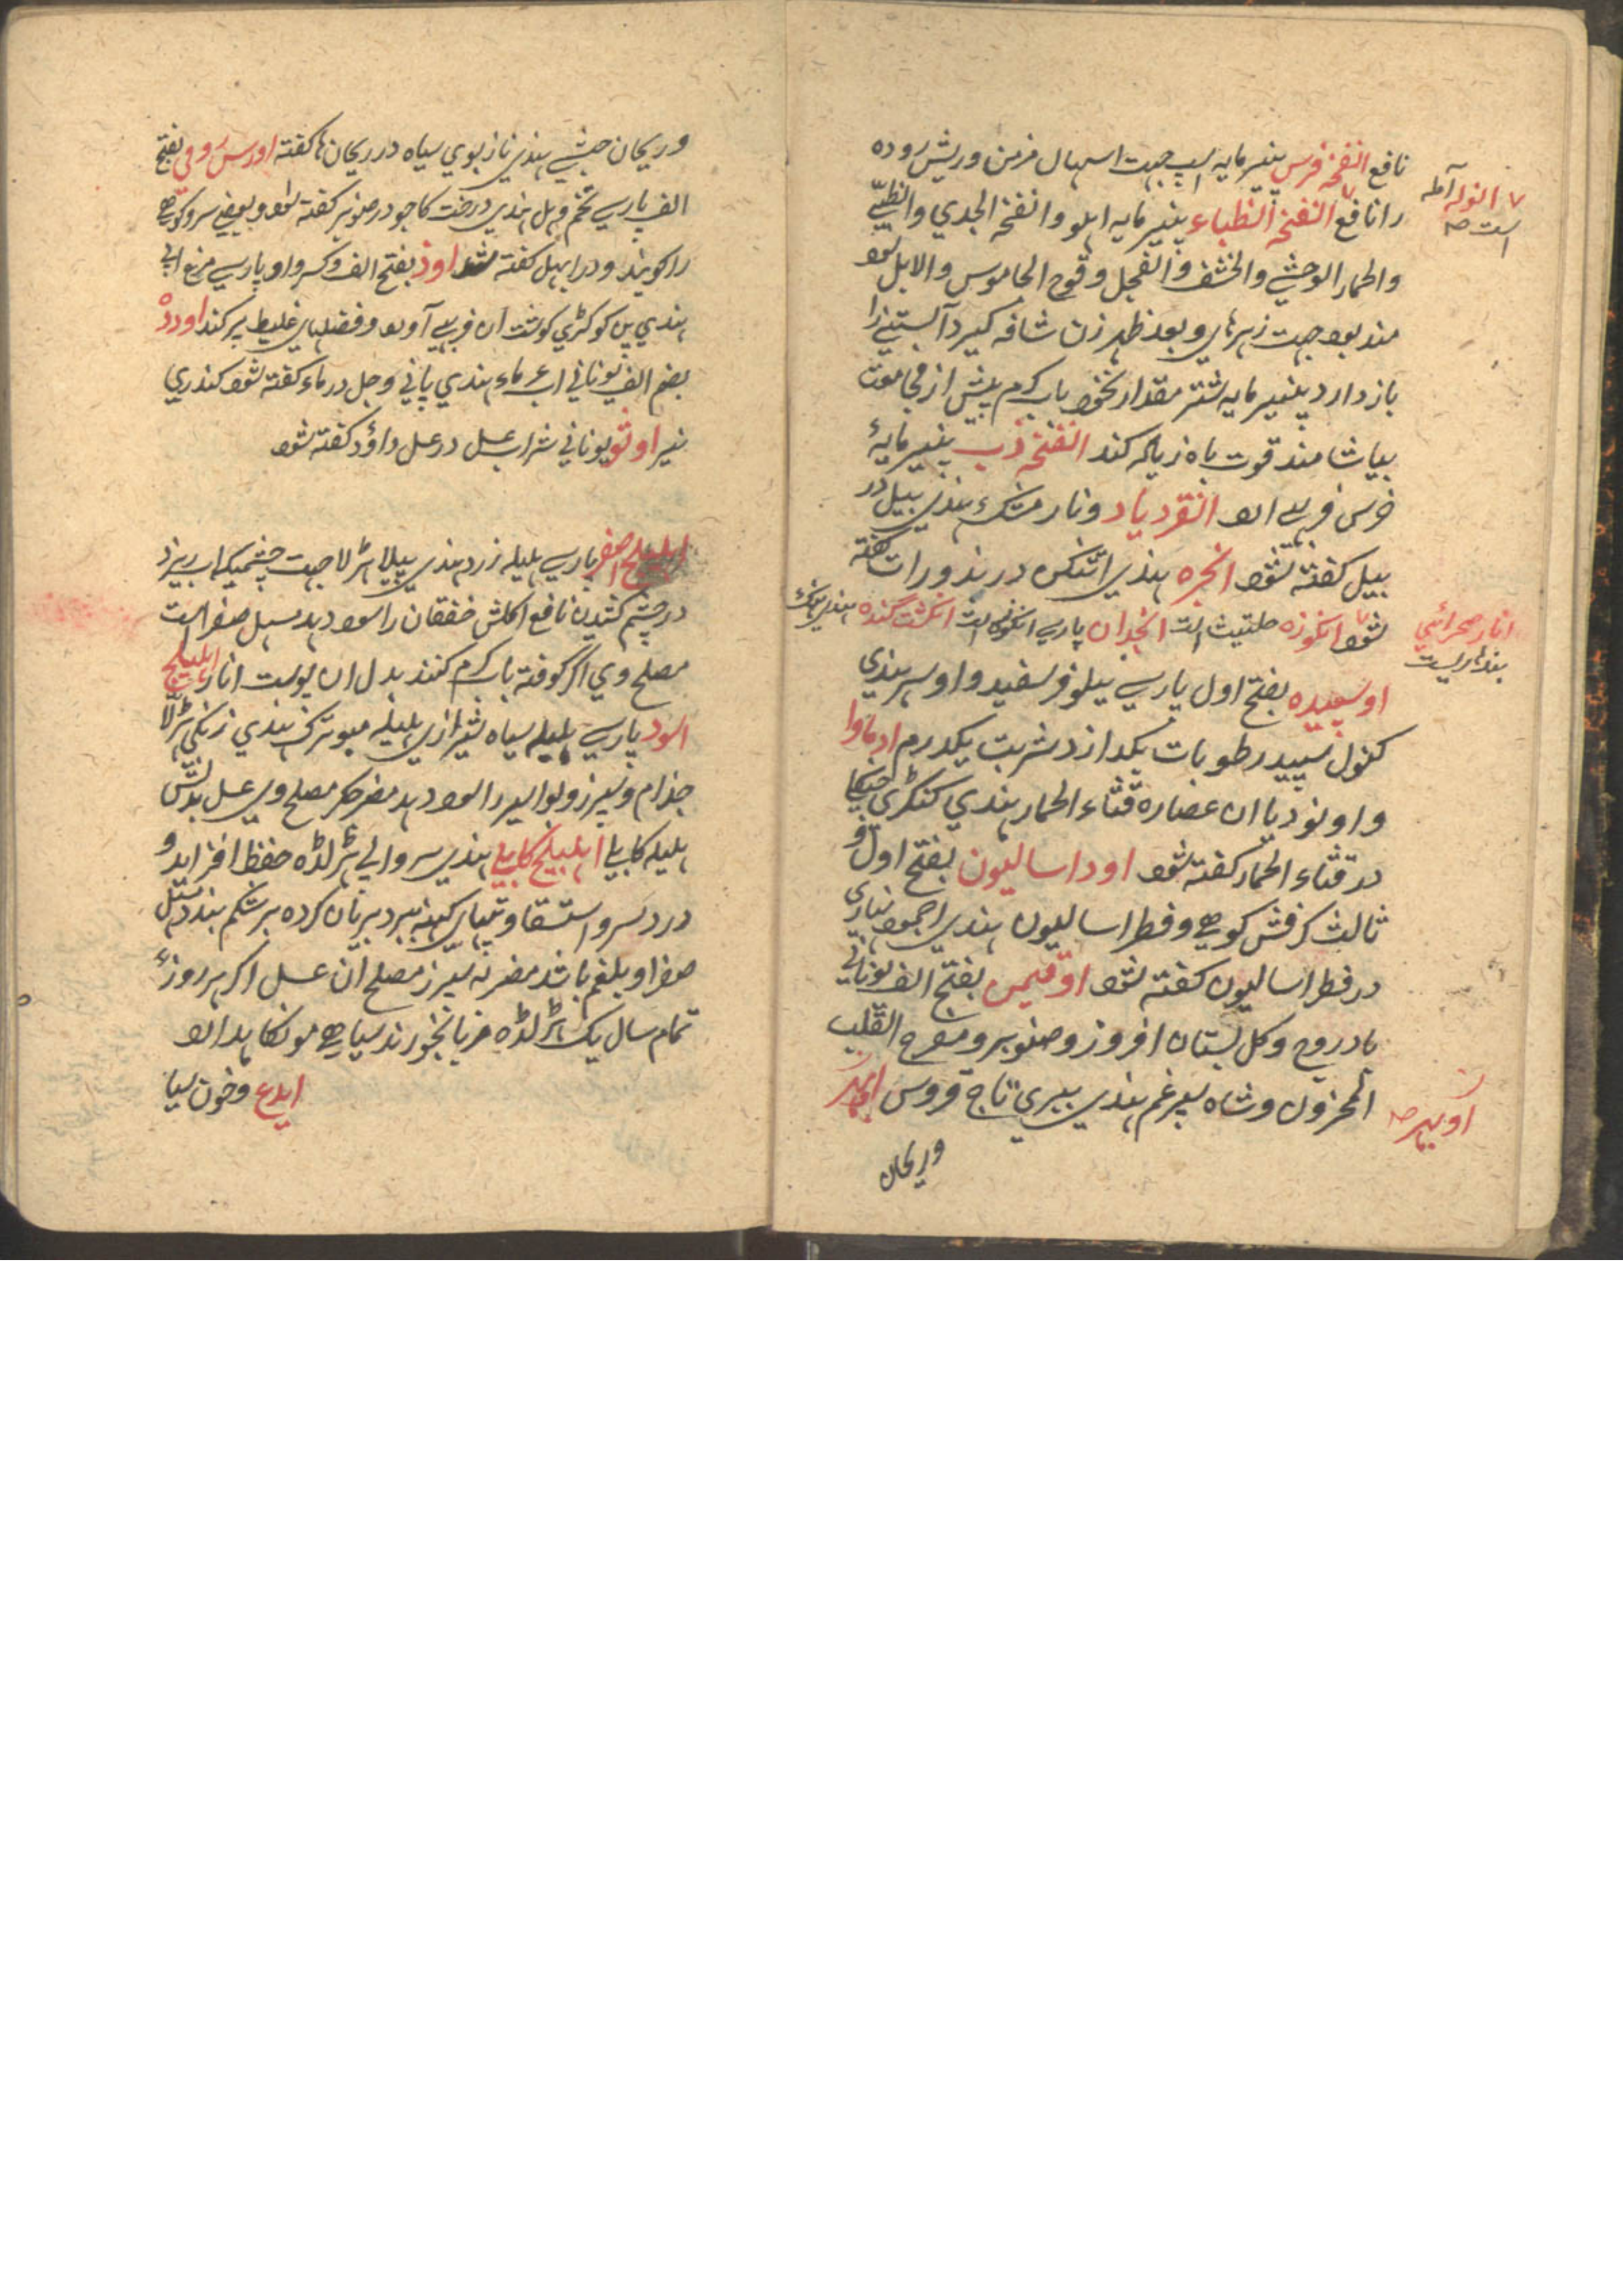 نافع انفخه فرس پنیر مایه اسپ جهت اسهال مزمن وریش روده
را نافع انفخه الظباء پنیر مایه اهلو وانفخه الجدي والظبي
والحمار الوحشي والخشف والعجل وقوح الجاموس والابل
مند بود جهت زهرهای وبعد طهر زن شافه گیرد آبستنی را
باز دارد پنیر مایه شتر مقدار نخود باب گرم پیش از
بیاشامند قوت باه زیاده کند انفخه دب پنیر مایهٔ
خرس فربهی ارد انقردیاد ونار مشک هندی بیل در
بیل گفته شود انجره هندی اتنکن در بذورات گفته
شود انکوزه حلتیث است انجدان پارسی انکوزه است انگشت گنده هندی
اوسپیده بفتح اول پارسی نیلوفر سفید واوسر هندی
کنول سپید رطوبات بگدازد شربت یکدرم
واونودیا ان عصاره قثاء الحمار هندی ککڑی
در قثاء الحمار گفته شود اوداسالیون بفتح اول و
ثالث کرفش کوهی وفطراسالیون هندی اجمود
در فطراسالیون گفته شود اوقیمن بفتح الف یونانی
بادروج وگل بستان افروز وصنوبر ومفرح القلب
المحزون وشاه سپرغم هندی ببری تاج فروس
وریحان
انوله آمله
است صه
انار صحرائي
اوبیر صه
وریحان حبشی هندی نازبوی سیاه در ریحانها گفته اورس رومی بفتح
الف پارسی تخم وهل هندی درخت کاجو در صنوبر گفته شود وبعضی سرو کوهی
را گویند ودر ابهل گفته شد اوز بفتح الف وکسر واو پارسی مرغ ابی
هندی پن کوکڑی گوشت ان فربهی آورد وفضلهای غلیظ پر کند اوردد
بضم الف یونانی اب عر ماء هندی پانی وجل در ماء گفته شود کندری
نیر اوتو یونانی شراب عسل در عسل داؤد گفته شود
اهلیلج اصفر پارسی هلیله زرد هندی پیلا هڑلا جهت چشمیکه اب ریزد
در چشم کشیدن نافع اکلش خفقان را سود دهد مسهل صفرا است
مصلح وی اگر کوفته باب گرم کنند بدل ان پوست انار اهلیلج
اسود پارسی هلیله سیاه شیرازی هلیله مبوترک هندی زنگی هڑلا
جذام وسپرز وبواسیر را سود دهد مضر جگر مصلح وی عسل بدلش
هلیله کابلی اهلیلج کابلی هندی سروالی هڑلڈه حفظ افزاید و
درد سر واستسقا وتپهای کهنه ببرد بریان کرده بر شکم بندد مسهل
صفرا وبلغم باشد مضر به سپرز مصلح ان عسل اگر هر روزه
تمام سال یک هڑلڈه مربا بخورند سیاهی مو نگاه دارد
ایدع وخون سیا